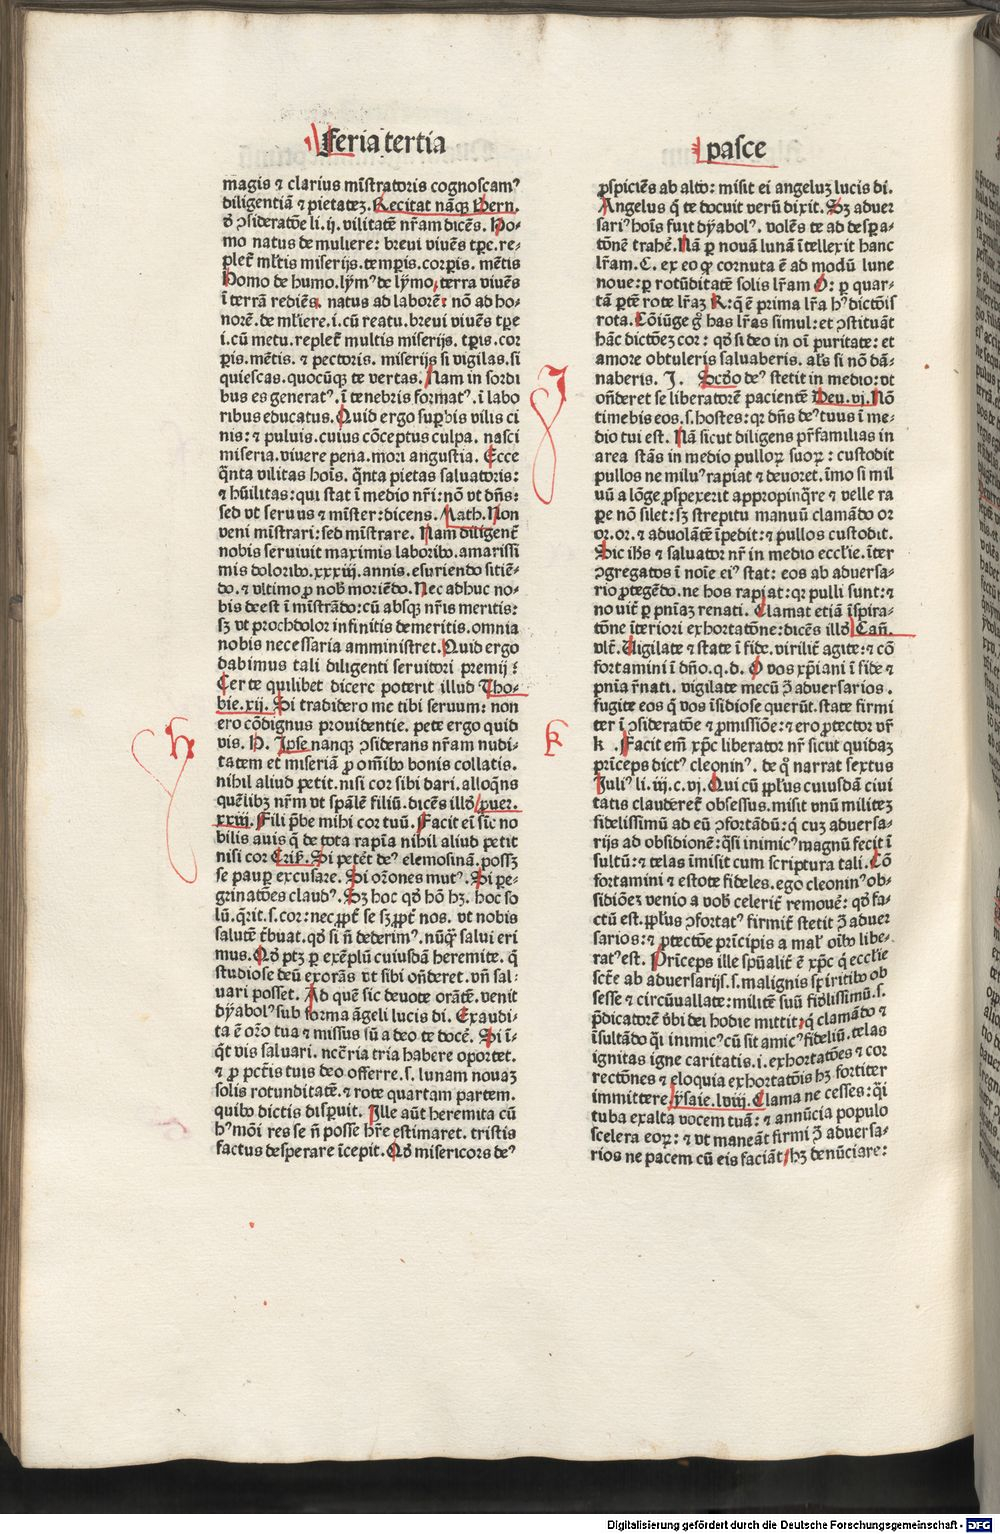 feria tertia
pasce
magis ⁊ clarius mi̅stratoris cognoscamꝰ
diligentiã ⁊ pietatez. Recitat nãqꝫ Bern.
ð ꝯsideratõe li. ij. vilitatẽ nr̃am dicẽs. Ho-
mo natus de muliere: breui viuẽs tp̃e. re-
plet᷒ ml̃tis miserijs. temꝑis. corꝑis. mẽtis
Homo de humo. lymꝰ de lymo, terra viuẽs
ĩ terrã rediẽs. natus ad laborẽ: nõ ad ho-
norẽ. de ml̃iere. i. cũ reatu. breui viuẽs tp̃e
i. cũ metu. replet᷒ multis miserijs. tp̃is. cor
ꝑis. mẽtis. ⁊ pectoris. miserijs si vigilas. si
quiescas. quocũqꝫ te vertas. Nam in sordi
bus es generatꝰ. ĩ tenebris formatꝰ. ĩ labo
ribus educatus. Quid ergo suꝑbis vilis ci
nis: ⁊ puluis. cuius cõceptus culpa. nasci
miseria. viuere pena. mori angustia. Ecce
q̃nta vilitas hoĩs. q̃nta pietas saluatoris:
⁊ hũilitas: qui stat ĩ medio nr̃i: nõ vt dñs:
sed vt seruus ⁊ mĩster: dicens. Math. Non
veni mĩstrari: sed mĩstrare. Nam diligent᷒
nobis seruiuit maximis laboribꝰ. amarissi
mis doloribꝰ. xxxiij. annis. esuriendo sitiẽ-
do. ⁊ vltimo ꝓ nob̃ moriẽdo. Nec adhuc no-
bis deest ĩ mĩstrãdo: cũ absqꝫ nr̃is meritis:
sꝫ vt prochdolor infinitis demeritis. omnia
nobis necessaria amministret. Quid ergo
dabimus tali diligenti seruitori premij?
Certe quilibet dicere poterit illud Tho-
bie. xij. Si tradidero me tibi seruum: non
ero cõdignus prouidentie. pete ergo quid
vis. H. Ipse nanqꝫ ꝯsiderans nr̃am nudi-
tatem et miseriã ꝓ om̃ibꝰ bonis collatis.
nihil aliud petit. nisi cor sibi dari. alloqñs
quẽlibꝫ nr̃m vt spãlẽ filiũ. dicẽs illð puer.
xxiij. Fili p̃be mihi cor tuũ. Facit ei sic no
bilis auis q̃ de tota rapĩa nihil aliud petit
nisi cor Criẜ. Si petẽt deꝰ elemosinã. possꝫ
se pauꝑ excusare. Si or̃ones mutꝰ. Si ꝑe-
grinatões claudꝰ. Sꝫ hoc qð hõ hꝫ. hoc so
lũ. q̃rit. s. cor: nec ꝓpt᷒ se sꝫ ꝓpt᷒ nos. vt nobis
salutẽ t̃buat. qð si ñ dederimꝰ. nũq̃ salui eri
mus. Qð ptꝫ ꝑ exẽplũ cuiusdã heremite. q̃
studiose deũ exorãs vt sibi oñderet. vñ sal-
uari posset. Ad quẽ sic deuote orãtẽ. venit
dyabolꝰ sub forma ãgeli lucis di. Exaudi-
ta ẽ or̃o tua ⁊ missus sũ a deo te docẽ. Si ĩ-
q̃t vis saluari. nccr̃ia tria habere oportet.
⁊ ꝓ pct̃is tuis deo offerre. s. lunam nouaz
solis rotunditatẽ. ⁊ rote quartam partem.
quibꝰ dictis disꝑuit. Ille aũt heremita cũ
hꝰmõi res se ñ posse hr̃e estimaret. tristis
factus desperare ĩcepit. Qð misericors deꝰ
ꝓspiciẽs ab alto: misit ei angeluz lucis di.
Angelus q̃ te docuit verũ dixit. Sꝫ aduer
sariꝰ hoĩs fuit dyabolꝰ. volẽs te ad desꝑa-
tõnẽ trahẽ. Nã ꝑ nouã lunã ĩtellexit hanc
lr̃am. C. ex eo ꝙ cornuta ẽ ad modũ lune
noue: ꝑ rotũditatẽ solis lr̃am O: ꝑ quar-
tã ꝑtẽ rote lr̃aꝫ R: q̃ ẽ prima lr̃a hꝰ dictõis
rota. Cõiũge g̊ has lr̃as simul: et ꝯstituãt
hãc dictõeꝫ cor: qð si deo in oĩ puritate: et
amore obtuleris saluaberis. al̃s si nõ dã-
naberis. J. Scðo deꝰ stetit in medio: vt
oñderet se liberatorẽ pacientẽ Deu. vj. Nõ
timebis eos. s. hostes: qꝛ dñs deꝰ tuus ĩ me-
dio tui est. Nã sicut diligens pr̃familias in
area stãs in medio pulloꝝ suoꝝ: custodit
pullos ne miluꝰ rapiat ⁊ deuoret. ĩmo si mil
uũ a lõge ꝓspexerit appropinq̃re ⁊ velle ra
ꝑe nõ silet: sꝫ strepitu manuũ clamãdo or
or. or. ⁊ aduolãtẽ ĩpedit: ⁊ pullos custodit.
Sic ih̃s ⁊ saluator nr̃ in medio eccl̃ie. ĩter
ꝯgregatos ĩ noĩe eiꝰ stat: eos ab aduersa-
rio ꝓtegẽdo. ne hos rapiat: qꝛ pulli sunt: ⁊
no uit᷒ ꝑ pñiaꝫ renati. Clamat etiã ĩspira-
tõne ĩteriori exhortatõne: dicẽs illð Cañ.
vlt᷒. Uigilate ⁊ state ĩ fide. virilit᷒ agite: ⁊ cõ
fortamini ĩ dño. q. d. O vos xp̃iani ĩ fide ⁊
pñia r̃nati. vigilate mecũ ꝫ̃ aduersarios.
fugite eos q̃ vos ĩsidiose querũt. state firmi
ter ĩ ꝯsideratõe ⁊ ꝓmissiõe: ⁊ ero ꝓtector vr̃
k. Facit em̃ xp̃c liberator nr̃ sicut quidaꝫ
prĩceps dictꝰ cleoninꝰ. de q̊ narrat sextus
Juliꝰ li. iij. c. vj. Qui cũ ꝓpl̃us cuiusdã ciui
tatis clauderet᷒ obsessus. misit vnũ militeꝫ
fidelissimũ ad eũ ꝯfortãdũ: q̃ cuꝫ aduersa-
rijs ad obsidionẽ: q̃si inimicꝰ magnũ fecit ĩ
sultũ: ⁊ telas ĩmisit cum scriptura tali. Cõ
fortamini ⁊ estote fideles. ego cleoninꝰ ob-
sidiõeꝫ venio a vob̃ celerit᷒ remouẽ: qð fa-
ctũ est. ꝓpl̃us ꝯfortatꝰ firmit᷒ stetit ꝫ̃ aduer
sarios: ⁊ ꝓtectõe prĩcipis a mal̃ oĩbꝰ libe-
ratꝰ est. Prĩceps ille spũalit᷒ ẽ xp̃c q̃ eccl̃ie
sct̃e ab aduersarijs. s. malignis spiritibꝰ ob
sesse ⁊ circũuallate: militẽ suũ fiðlissimũ. s.
p̃dicatorẽ v̓bi dei hodie mittit: q̃ clamãdo ⁊
ĩsultãdo q̃i inimicꝰ cũ sit amicꝰ fideliũ. telas
ignitas igne caritatis. i. exhortatões ⁊ cor
rectõnes ⁊ eloquia exhortatõis hꝫ fortiter
immittere. ysaie. lviij. Clama ne cesses: q̃i
tuba exalta vocem tuã: ⁊ annũcia populo
scelera eoꝝ: ⁊ vt maneãt firmi ꝫ̃ aduersa-
rios ne pacem cũ eis faciãt: hꝫ denũciare:
h
J
k
Digitalisierung gefördert durch die Deutsche Forschungsgemeinschaft - DFG